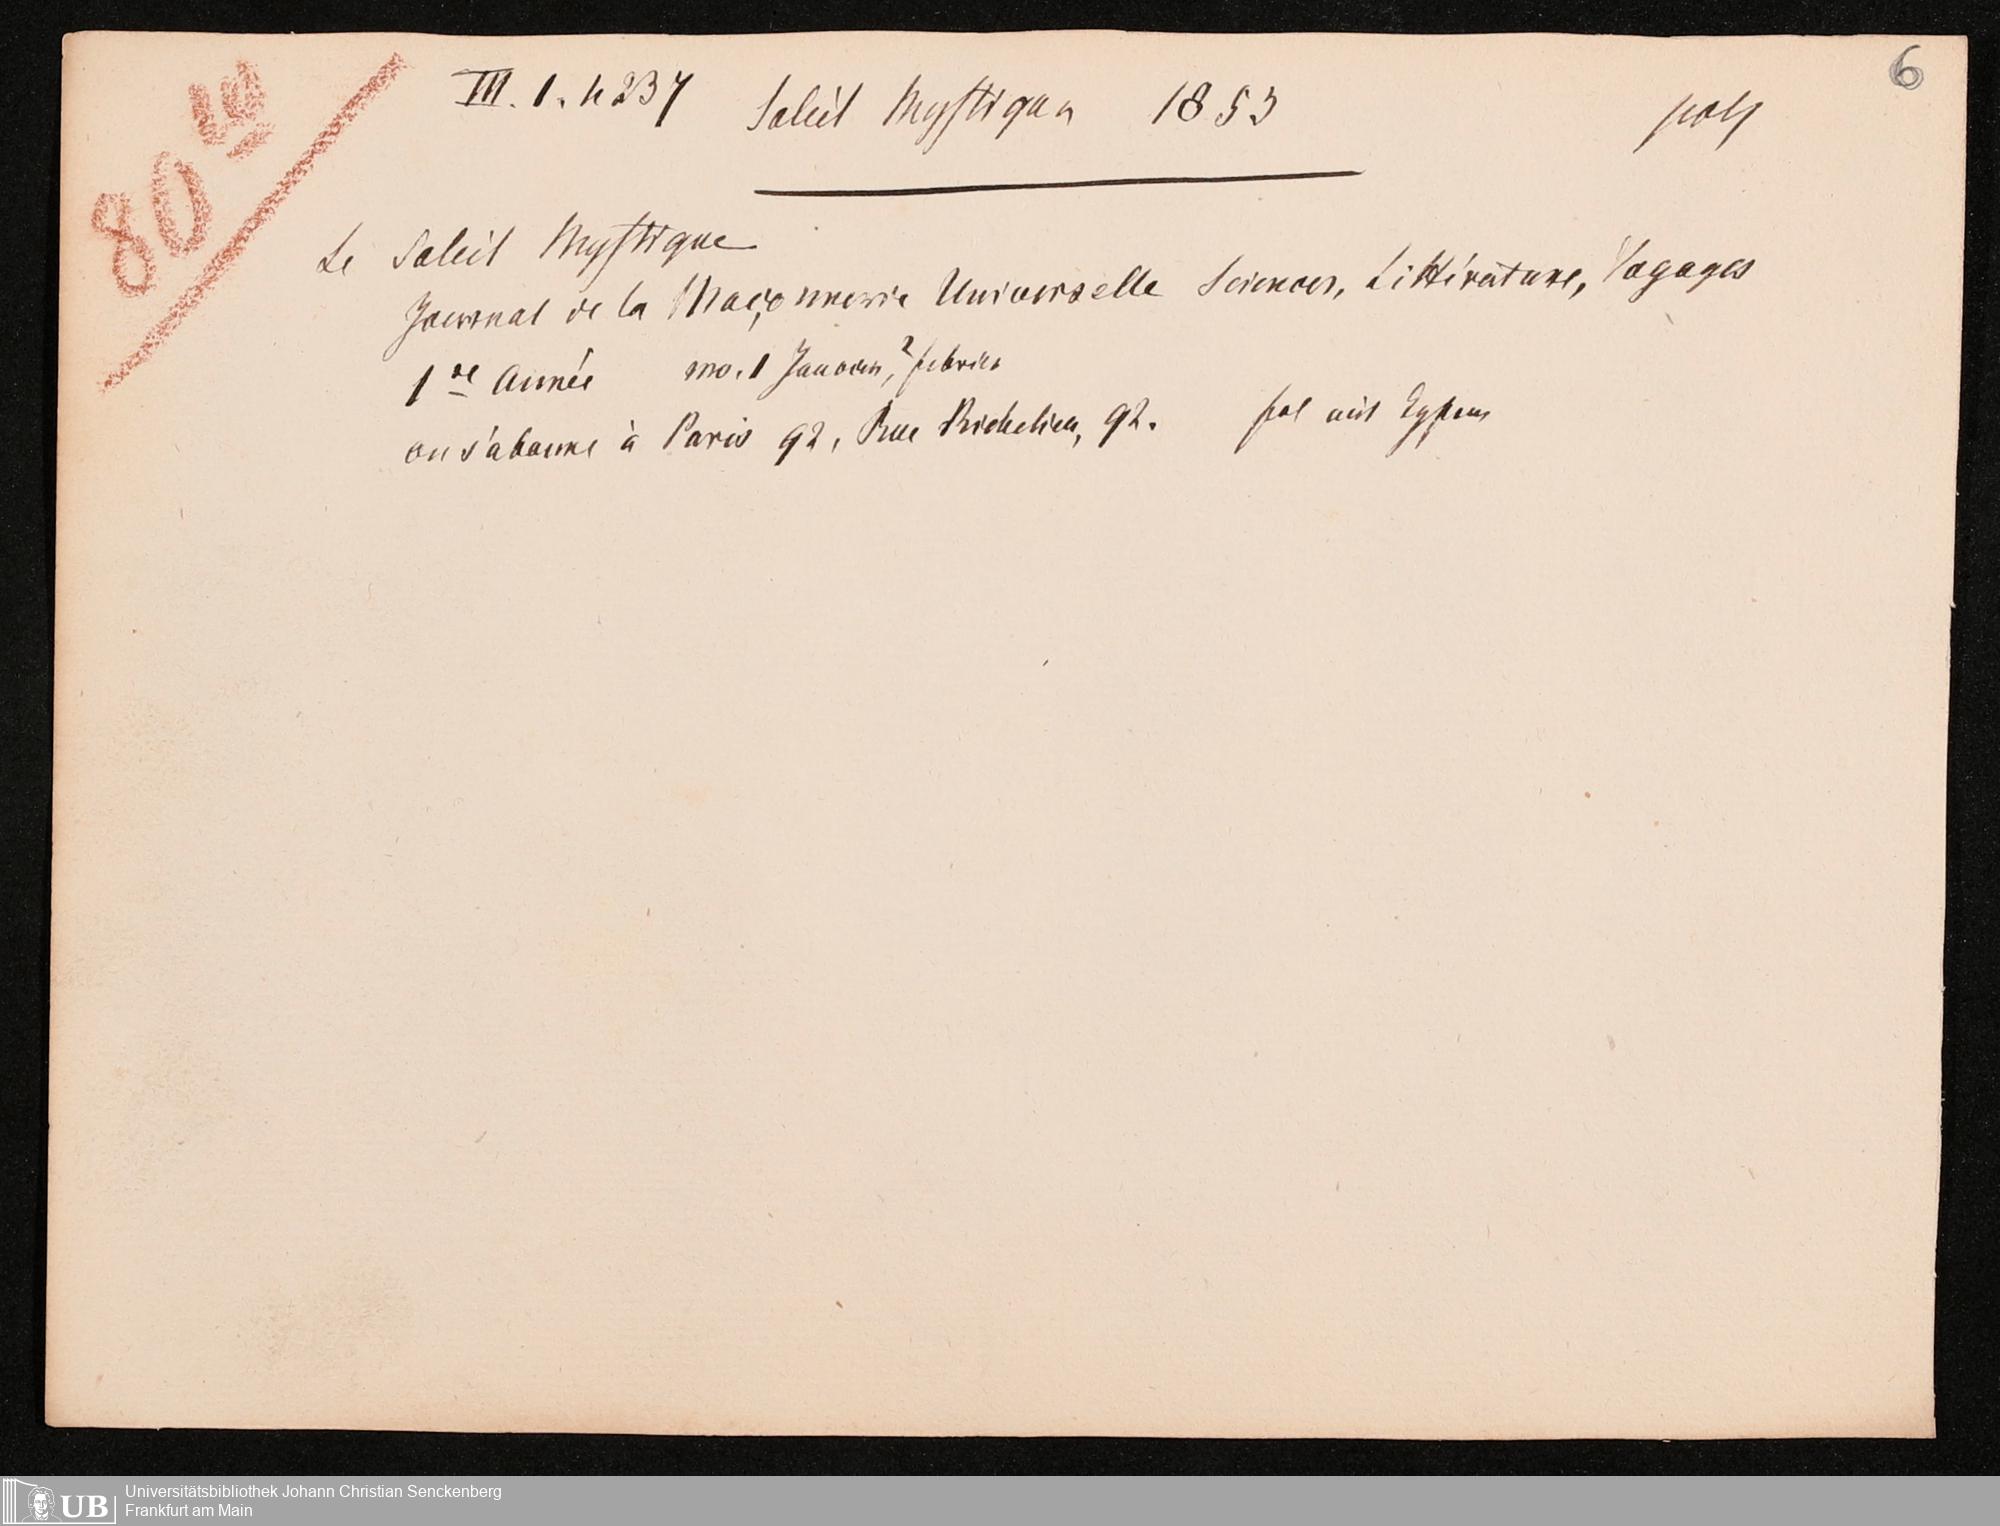 6
80
III. 1. h 237 Soleil Mystique 1853
Le Soleil Mystique
Journal de la Maçonnerie Universelle Sciences, Littérature, Voyages
1re Année no. 1 Janvier, 2 février
on s'abonne à Paris 92, Rue Richelieu, 92. fol mit
Universitätsbibliothek Johann Christian Senckenberg
Frankfurt am Main
UB